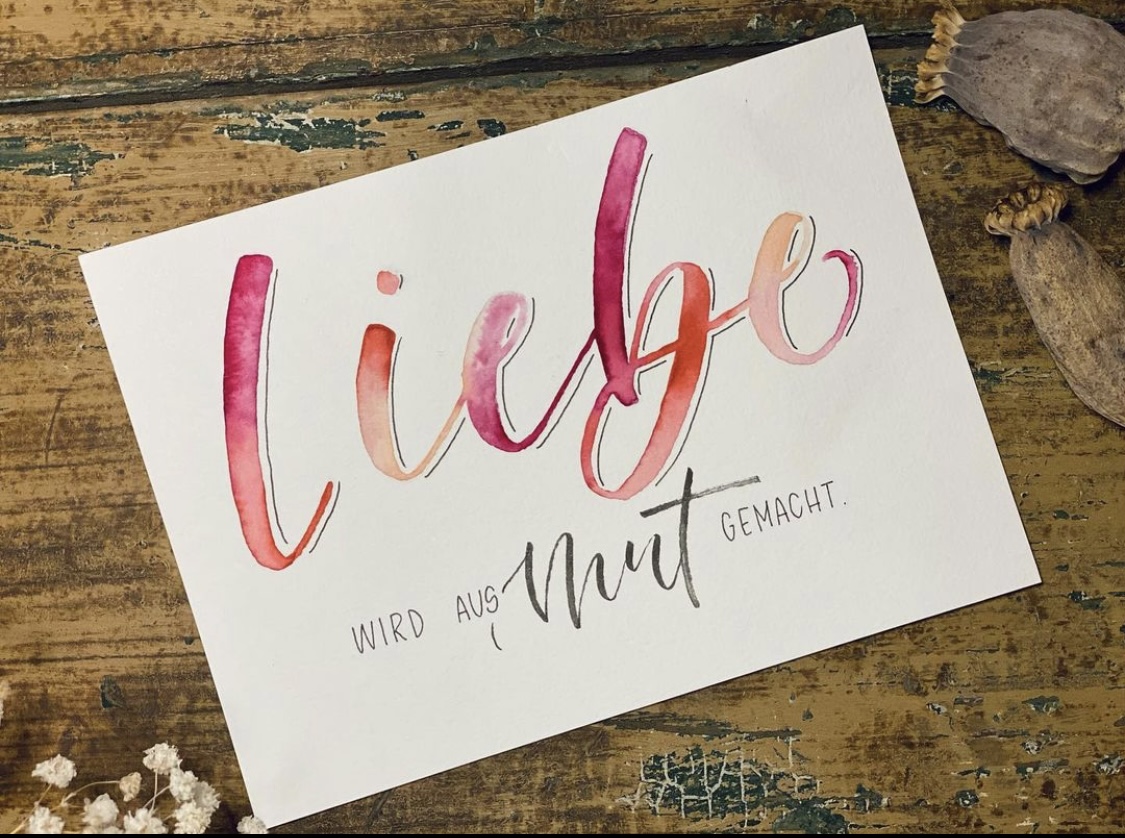 liebe
WIRD AUS mut GEMACHT.